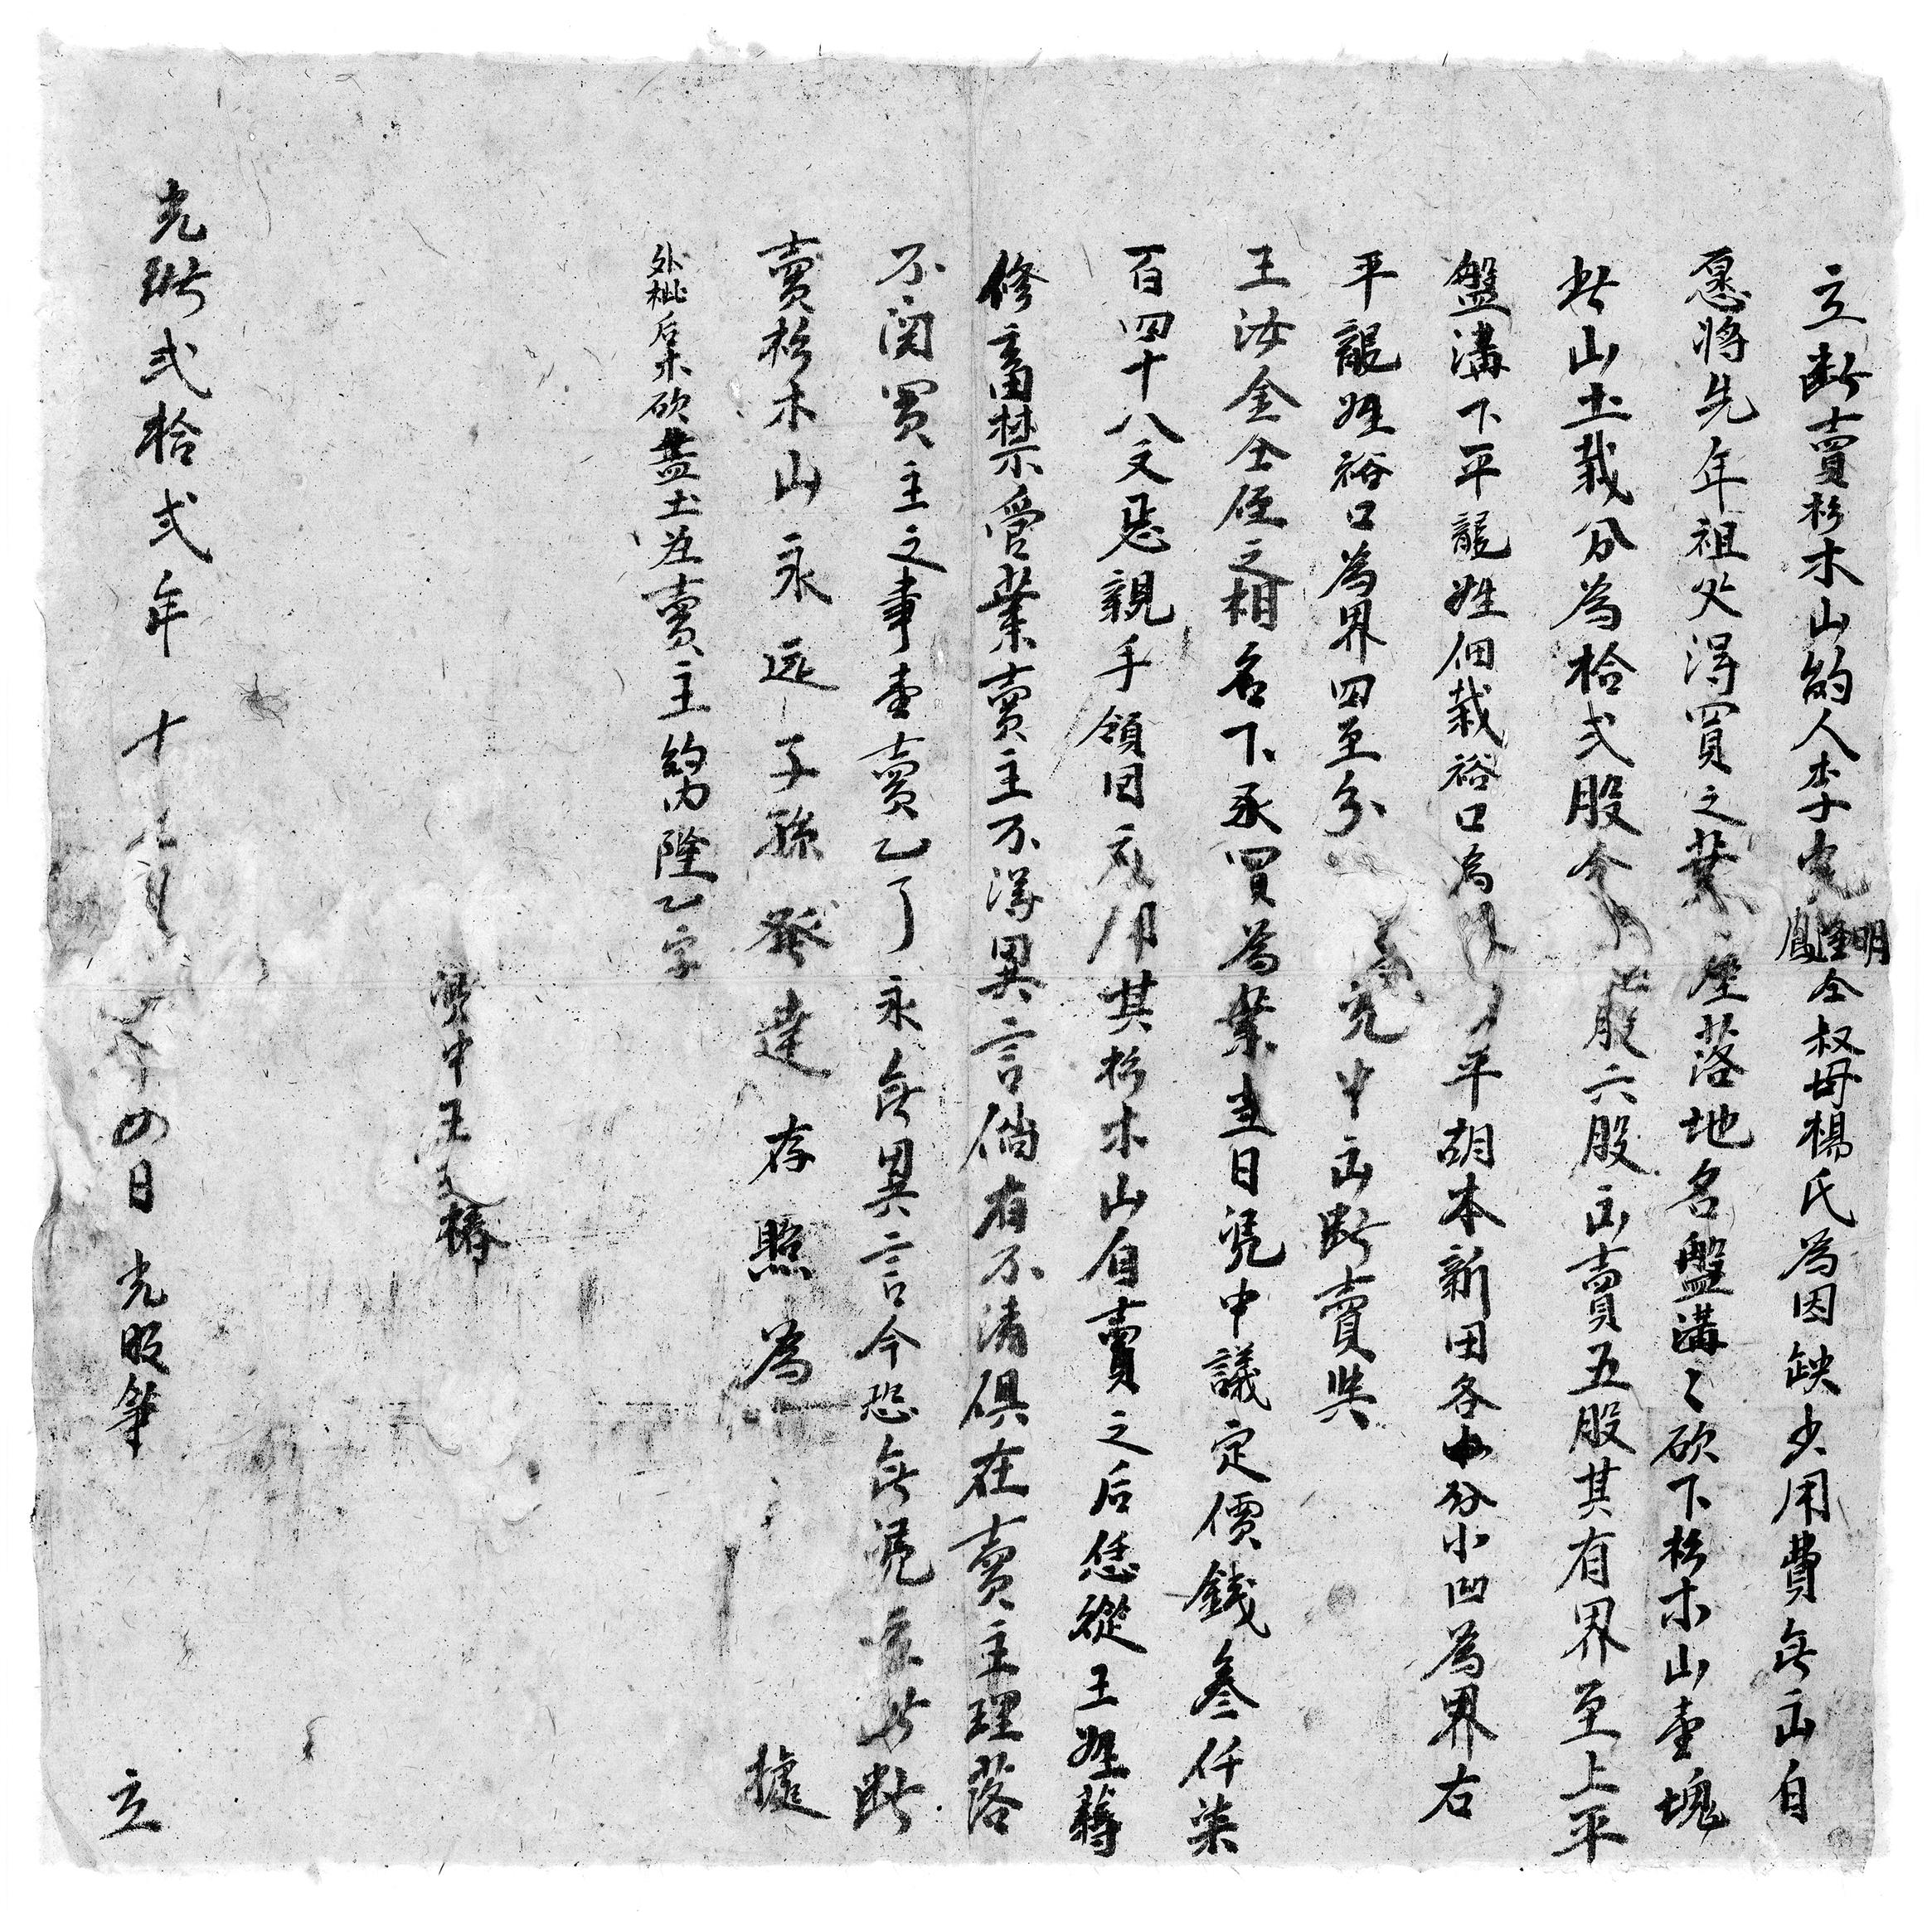 立斷賣杉木山約人李光明隆鳳仝叔母楊氏為因缺少用費無出自
愿將先年祖父得買之業座落地名盤溝〻砍下杉木山壹塊
此山土栽分為拾弍股今 股六股出賣五股其有界至上平
盤溝下平龍姓佃栽裕口為 平胡本新田各中分小凹為界右
平龍姓裕口為界四至分 凴中出斷賣與
王汝金仝侄之相名下承買為業当日凴中議定價錢叁仟柒
百四十八文恁親手領回应用其杉木山自賣之后恁從王姓蓐
修畜禁管業賣主不得異言倘有不清俱在賣主理落
不関買主之事壹賣乙了永無異言今恐無凴立此斷
賣杉木山永远子孫發達存照為 據
外批后木砍盡土為賣主 約內隆乙字
凴中王文椿
光緒弍拾弍年十 月 四日 光照筆 立